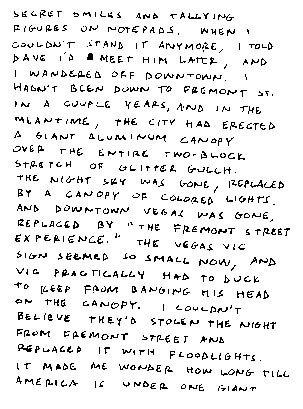 SECRET SMILES AND TALLYING
FIGURES ON NOTEPADS. WHEN I
COULDN'T STAND IT ANYMORE, I TOLD
DAVE I'D MEET HIM LATER, AND
I WANDERED OFF DOWNTOWN. I
HADN'T BEEN DOWN TO FREMONT ST.
IN A COUPLE YEARS, AND IN THE
MEANTIME, THE CITY HAD ERECTED
A GIANT ALUMINUM CANOPY
OVER THE ENTIRE TWO-BLOCK
STRETCH OF GLITTER GULCH.
THE NIGHT SKY WAS GONE, REPLACED
BY A CANOPY OF COLORED LIGHTS.
AND DOWNTOWN VEGAS WAS GONE,
REPLACED BY "THE FREMONT STREET
EXPERIENCE." THE VEGAS VIC
SIGN SEEMED SO SMALL NOW, AND
VIC PRACTICALLY HAD TO DUCK
TO KEEP FROM BANGING HIS HEAD
ON THE CANOPY. I COULDN'T
BELIEVE THEY'D STOLEN THE NIGHT
FROM FREMONT STREET AND
REPLACED IT WITH FLOODLIGHTS.
IT MADE ME WONDER HOW LONG TILL
AMERICA IS UNDER ONE GIANT